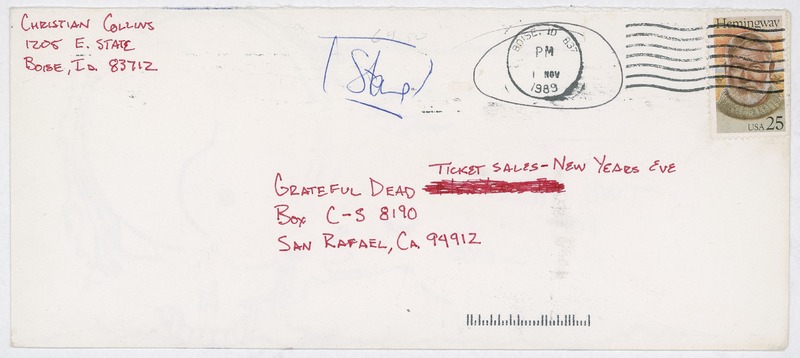 CHRISTIAN COLLINS
1205 E. STATE
BOISE, ID. 83712
BOISE, ID 837
PM
1 NOV
1989
Hemingway
USA 25
TICKET SALES - NEW YEARS EVE
GRATEFUL DEAD
BOX C-S 8190
SAN RAFAEL, CA 94912